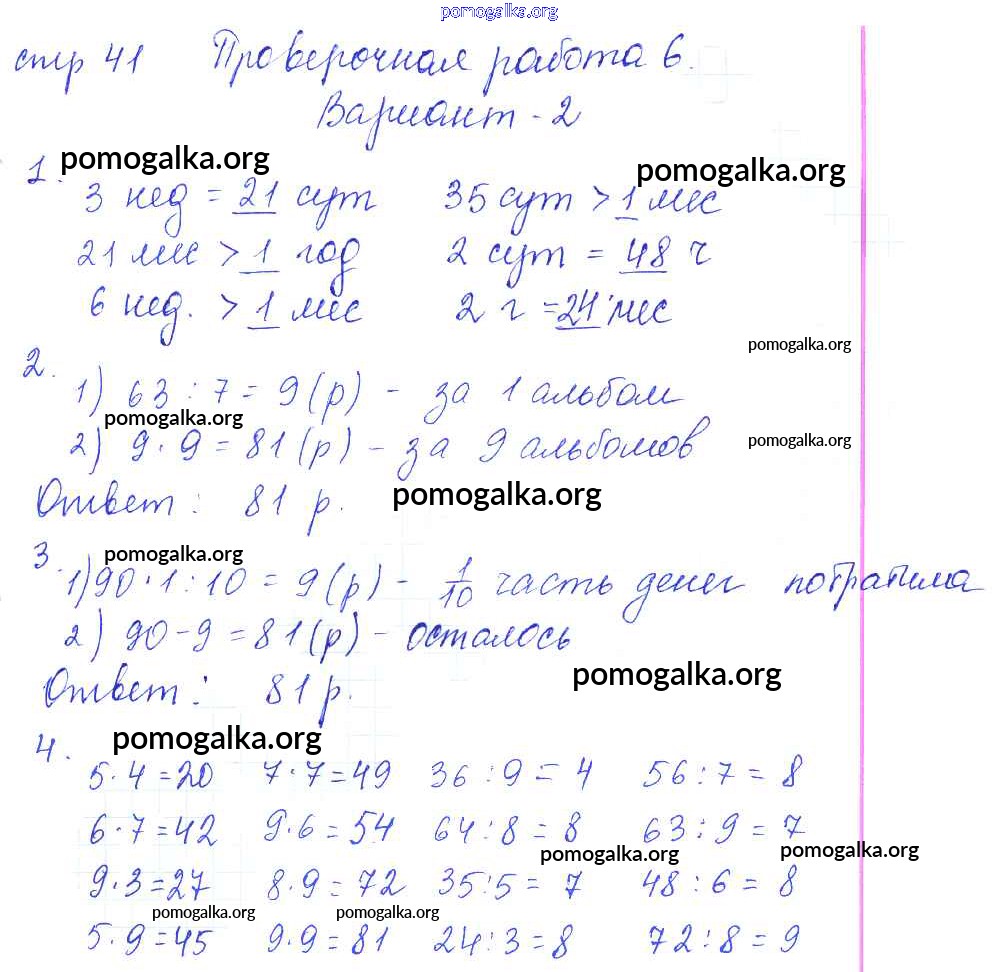 pomogalka.org
стр 41 Проверочная работа 6.
Вариант - 2
1. pomogalka.org pomogalka.org
3 нед = 21 сут 35 сут > 1 мес
21 мес > 1 год 2 сут = 48 ч
6 нед. > 1 мес 2 г = 24 мес
pomogalka.org
2.
1) 63 : 7 = 9 (р) - за 1 альбом
pomogalka.org
2) 9 · 9 = 81 (р) - за 9 альбомов pomogalka.org
Ответ: 81 р. pomogalka.org
3. pomogalka.org
1) 90 · 1 : 10 = 9 (р) - 1/10 часть денег потратила
2) 90 - 9 = 81 (р) - осталось
pomogalka.org
Ответ: 81 р.
4. pomogalka.org
5 · 4 = 20 7 · 7 = 49 36 : 9 = 4 56 : 7 = 8
6 · 7 = 42 9 · 6 = 54 64 : 8 = 8 63 : 9 = 7
pomogalka.org pomogalka.org
9 · 3 = 27 8 · 9 = 72 35 : 5 = 7 48 : 6 = 8
pomogalka.org pomogalka.org
5 · 9 = 45 9 · 9 = 81 24 : 3 = 8 72 : 8 = 9